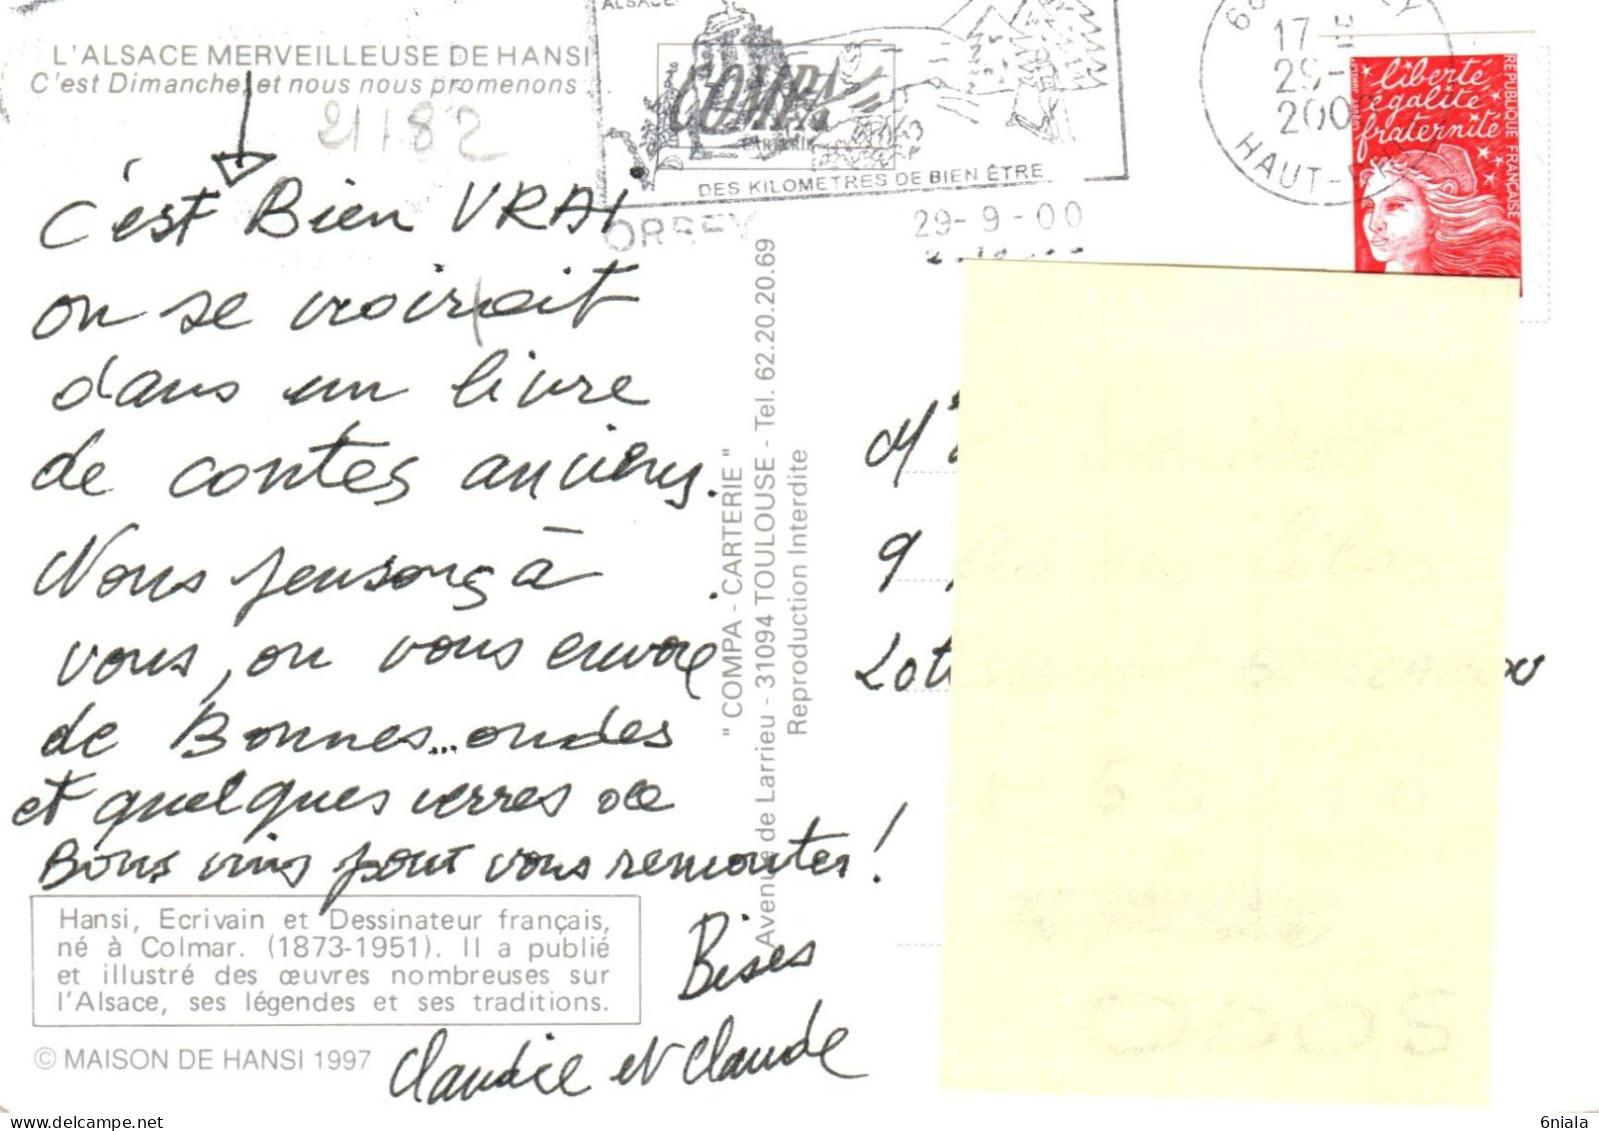 ALSACE
L'ALSACE MERVEILLEUSE DE HANSI
C'est Dimanche, et nous nous promenons...
21182
COMPA
CARTERIE
DES KILOMETRES DE BIEN ÊTRE
ORBEY
29-9-00
17
29-
200
HAUT-
liberté
égalité
fraternité
REPUBLIQUE FRANÇAISE
C'est Bien VRAI
on se croirait
dans un livre
de contes anciens.
Nous pensons à
vous, on vous envoie
de Bonnes... ondes
et quelques verres de
Bons vins pour vous remonter!
Bises
Claudie et Claude
Hansi, Ecrivain et Dessinateur français,
né à Colmar. (1873-1951). Il a publié
et illustré des œuvres nombreuses sur
l'Alsace, ses légendes et ses traditions.
© MAISON DE HANSI 1997
" COMPA - CARTERIE "
Avenue de Larrieu - 31094 TOULOUSE - Tel. 62.20.20.69
Reproduction Interdite
9
6niala